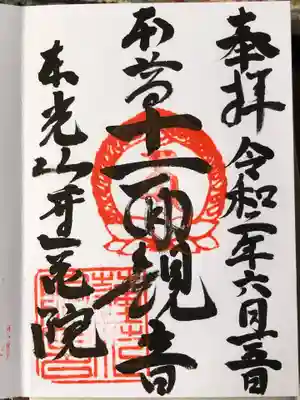 奉拝 令和二年六月十五日
本尊十一面観音
東光山 花院